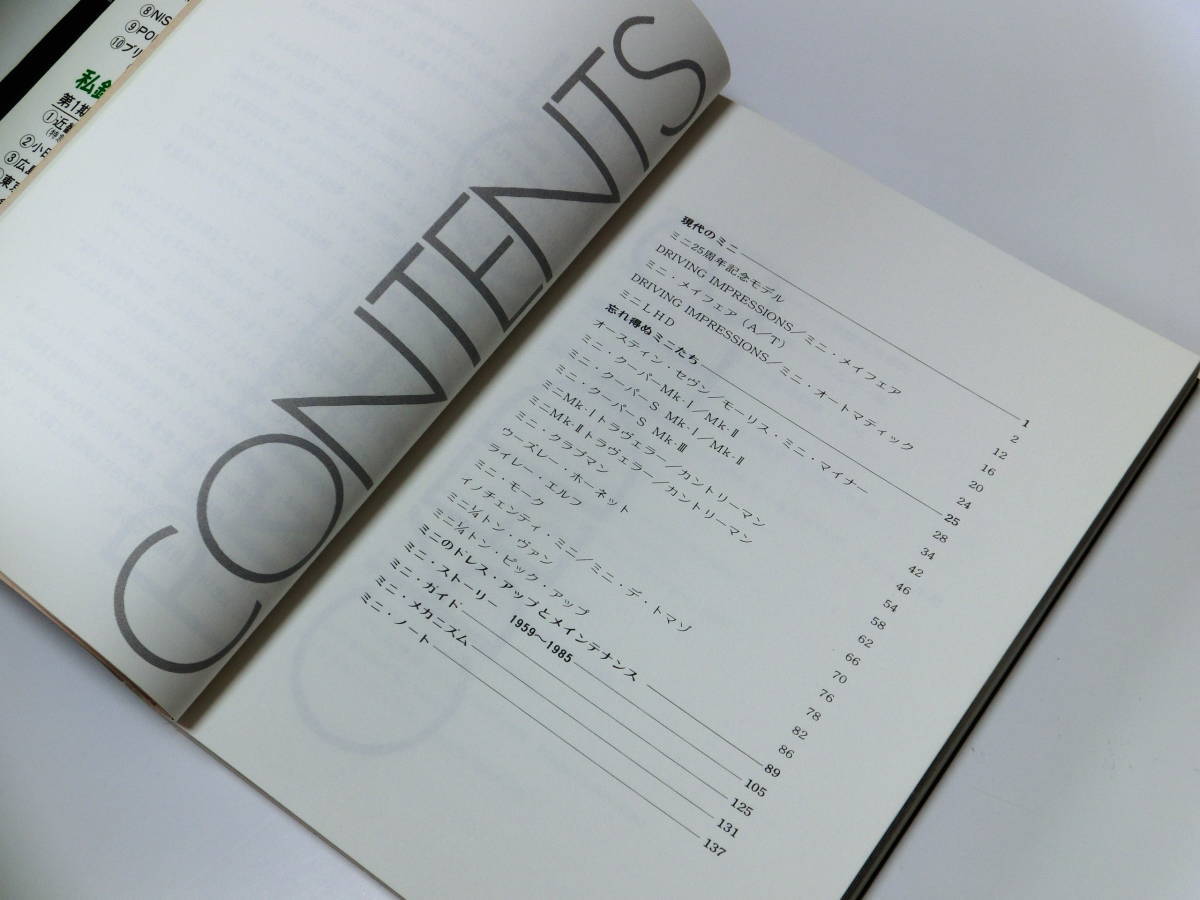 ⑧NIS
⑨PO
⑩ブリ
第1期
①近
②小
③広
CONTENTS
現代のミニ 1
ミニ25周年記念モデル 2
DRIVING IMPRESSIONS／ミニ・メイフェア 12
ミニ・メイフェア（A／T） 16
DRIVING IMPRESSIONS／ミニ・オートマティック 20
ミニLHD 24
忘れ得ぬミニたち 25
オースティン・セヴン／モーリス・ミニ・マイナー 28
ミニ・クーパーMk-Ⅰ／Mk-Ⅱ 34
ミニ・クーパーS Mk-Ⅰ／Mk-Ⅱ 42
ミニ・クーパーS Mk-Ⅲ 46
ミニMk-Ⅰトラヴェラー／カントリーマン 54
ミニMk-Ⅱトラヴェラー／カントリーマン 58
ミニ・クラブマン 62
ウーズレー・ホーネット 66
ライレー・エルフ 70
ミニ・モーク 76
イノチェンティ・ミニ／ミニ・デ・トマゾ 78
ミニ¼トン・ヴァン 82
ミニ¼トン・ピック・アップ 86
ミニのドレス・アップとメインテナンス 89
ミニ・ストーリー 1959〜1985 105
ミニ・ガイド 125
ミニ・メカニズム 131
ミニ・ノート 137